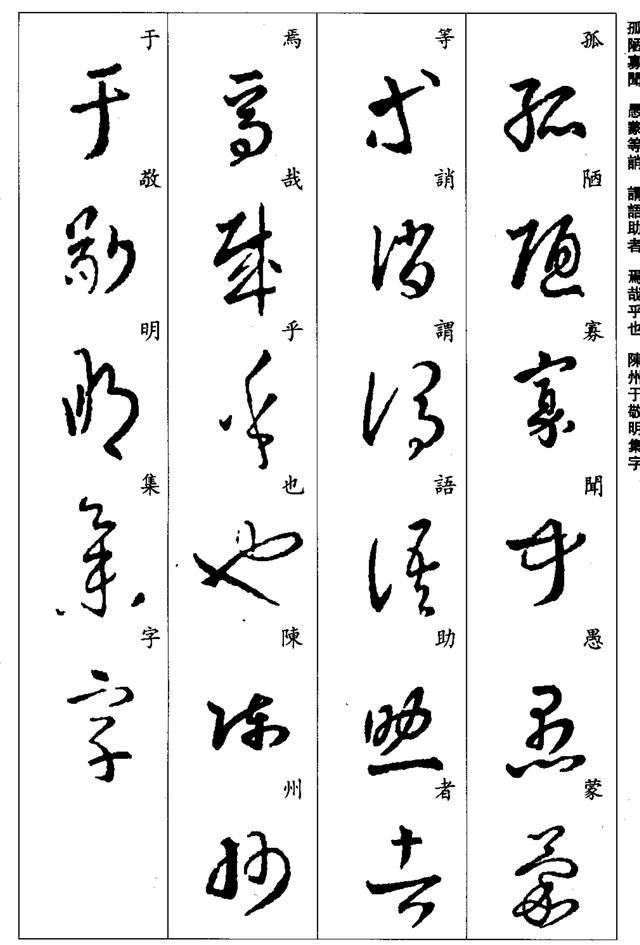 孤陋寡聞 愚蒙等誚 謂語助者 焉哉乎也 陳州于敬明集字
孤陋寡聞愚蒙
等誚謂語助者
焉哉乎也陳州
于敬明集字